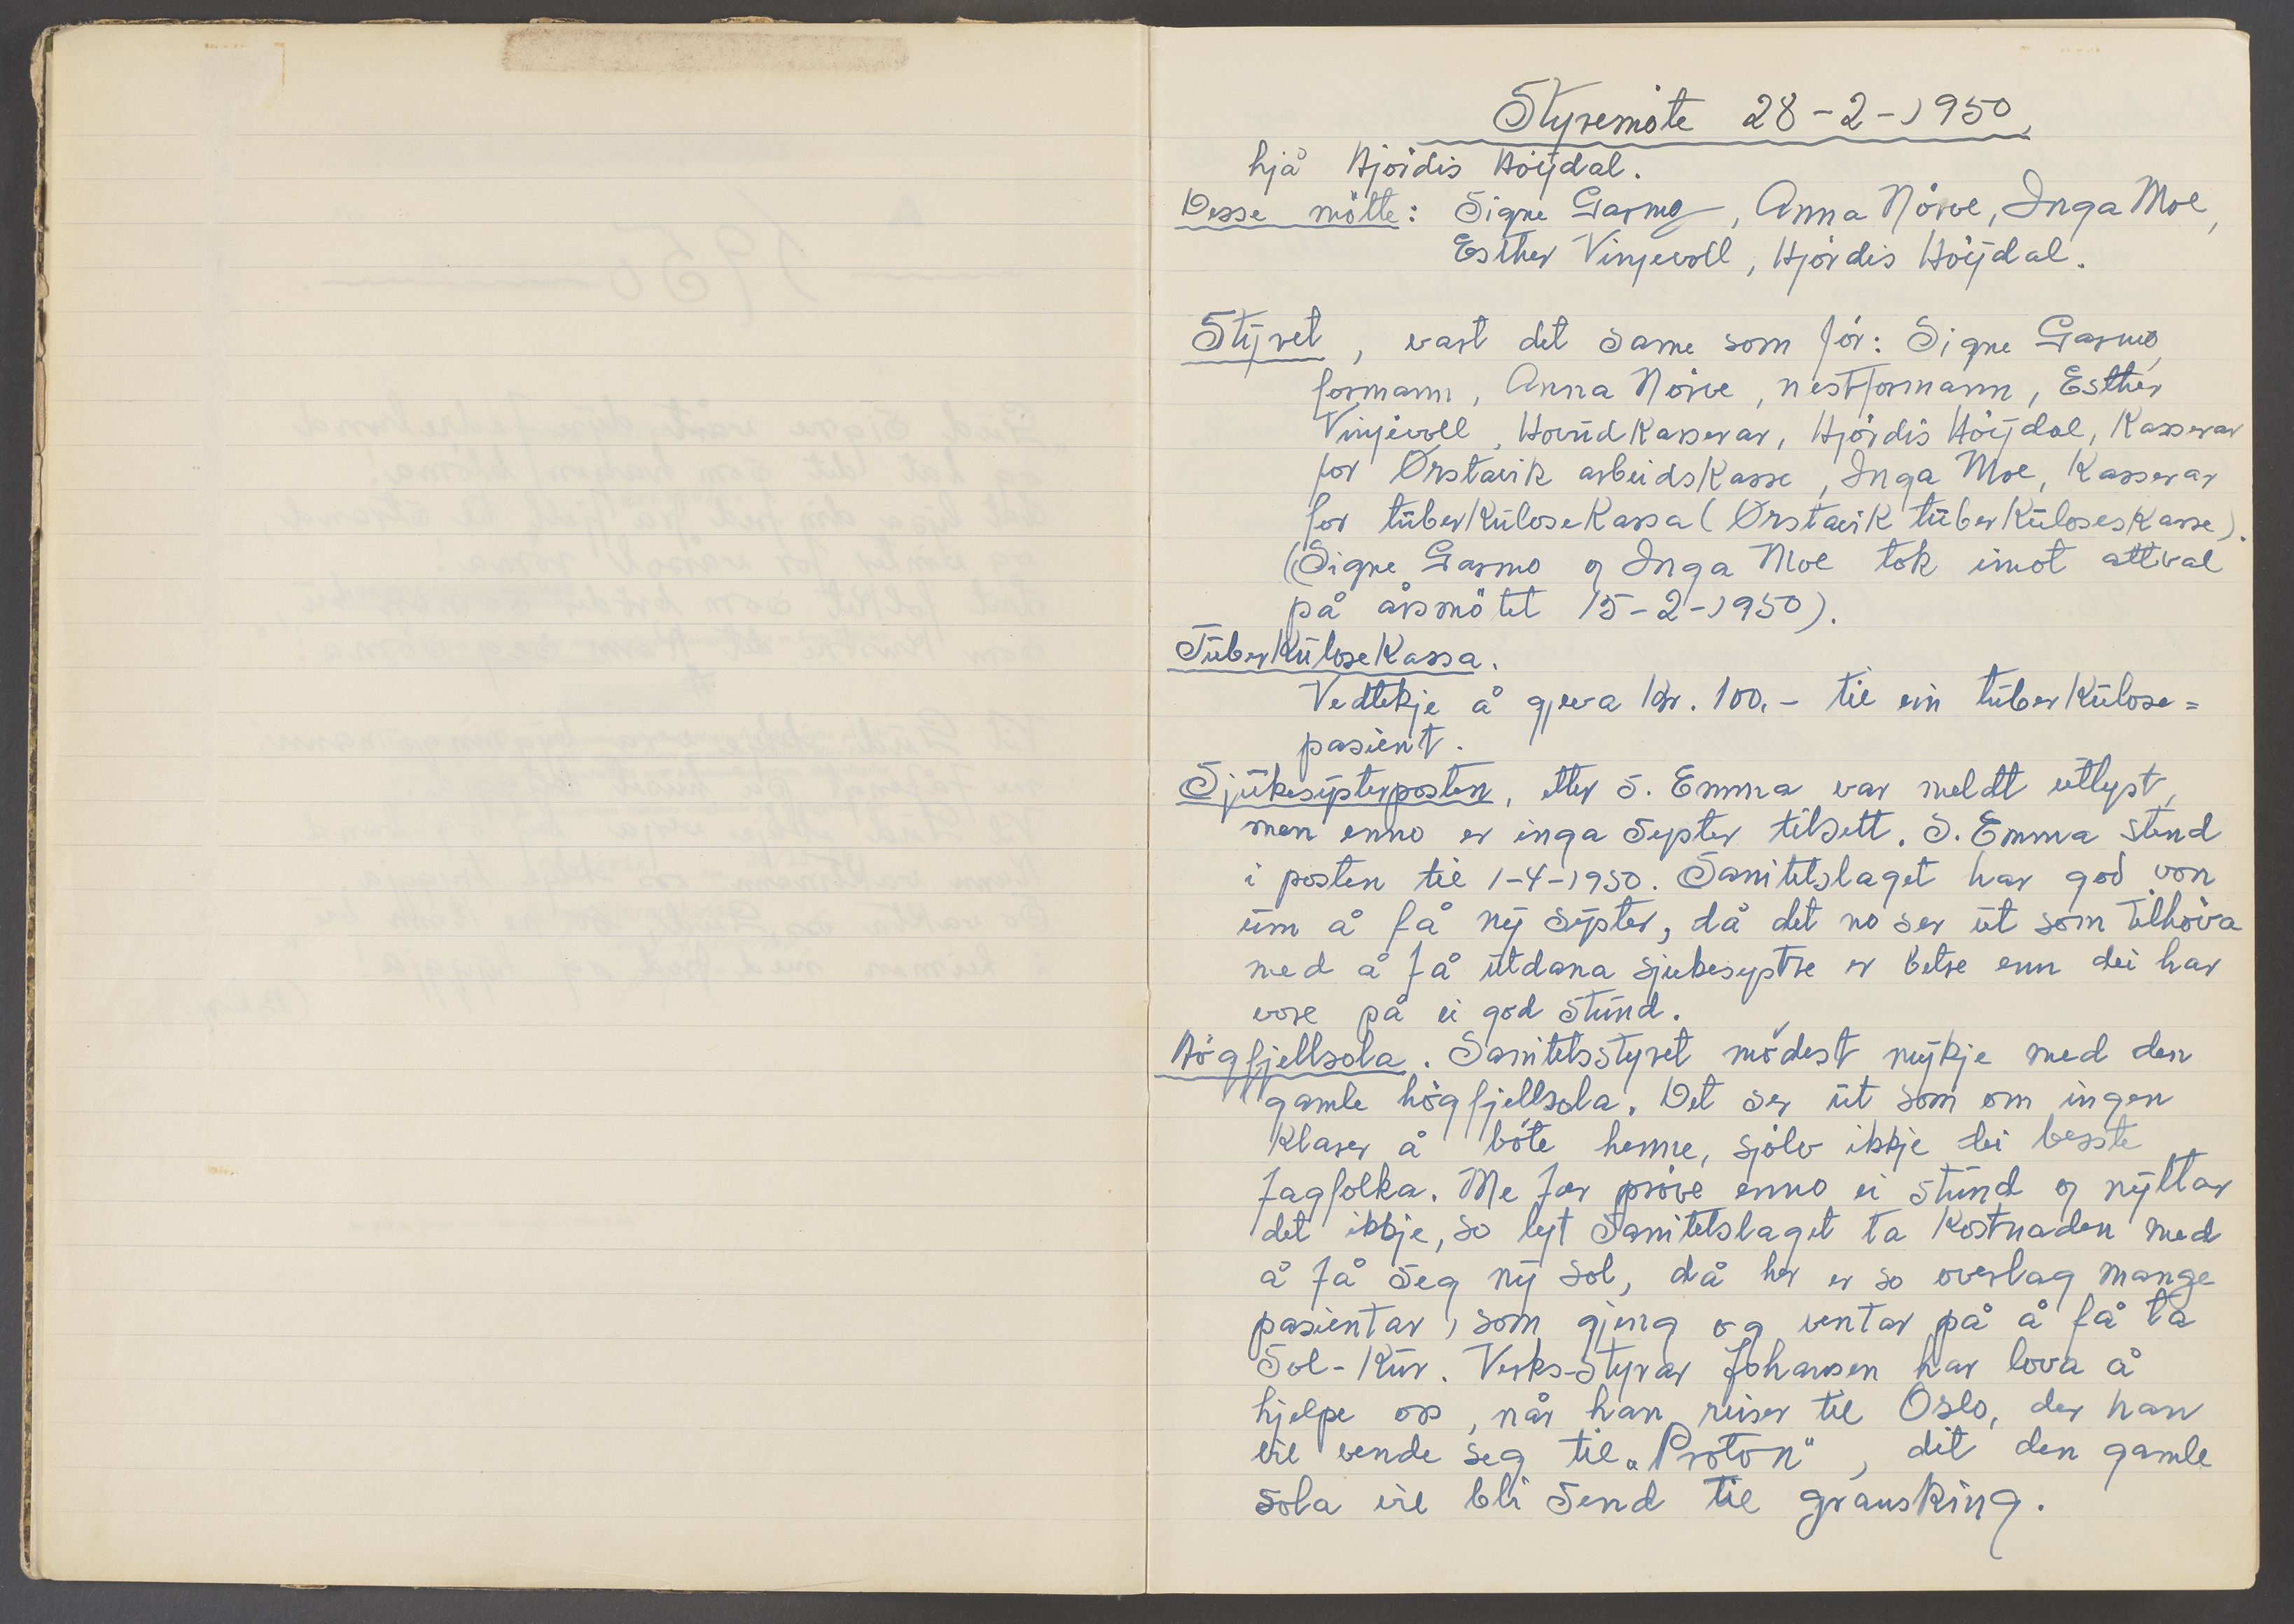 Styremöte 28-2-1950,
hjå Hjördis Höijdal.
Desse mötte: Signe Garmo, Anna Nörve, Inga Moe,
Esther Vinjevoll, Hjördis Höijdal.
Styret, vart det same som för: Signe Garmo,
formann, Anna Nörve, nestformann, Esther
Vinjevoll, Hovudkasserar, Hjördis Höijdal, Kasserar
for Ørstavik arbeidskasse, Inga Moe, Kasserar
for tuberkulosekassa (Ørstavik tuberkuloseskasse).
(Signe Garmo og Inga Moe tok imot attval
på årsmötet 15-2-1950).
Tuberkulosekassa.
Vedtekje å gjeva kr. 100,- til ein tuberkulose=
pasient.
Sjukesysterposten, etter S. Emma var meldt utlyst,
men enno er inga syster tilsett. S. Emma stend
i posten til 1-4-1950. Sanitetslaget har god von
um å få ny syster, då det no ser ut som tilhöva
med å få utdana sjukesystre er betre enn dei har
vore på ei god stund.
Högfjellsola. Sanitetsstyret mödest mykje med den
gamle högfjellsola. Det ser ut som om ingen
klarer å böte henne, sjölv ikkje dei beste
fagfolka. Me fær pröve enno ei stund og nyttar
det ikkje, so lyt Sanitetslaget ta kostnaden med
å få seg ny sol, då her er so overlag mange
pasientar, som gjeng og ventar på å få ta
Sol-kur. Verks-styrar Johansen har lova å
hjelpe oss, når han reiser til Oslo, der han
vil vende seg til „Proton", dit den gamle
sola vil bli send til gransking.